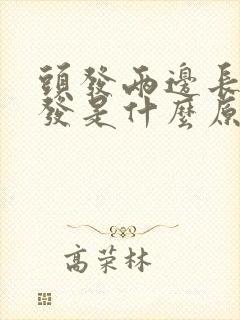 頭發兩邊長
發是什麼原
高荣林